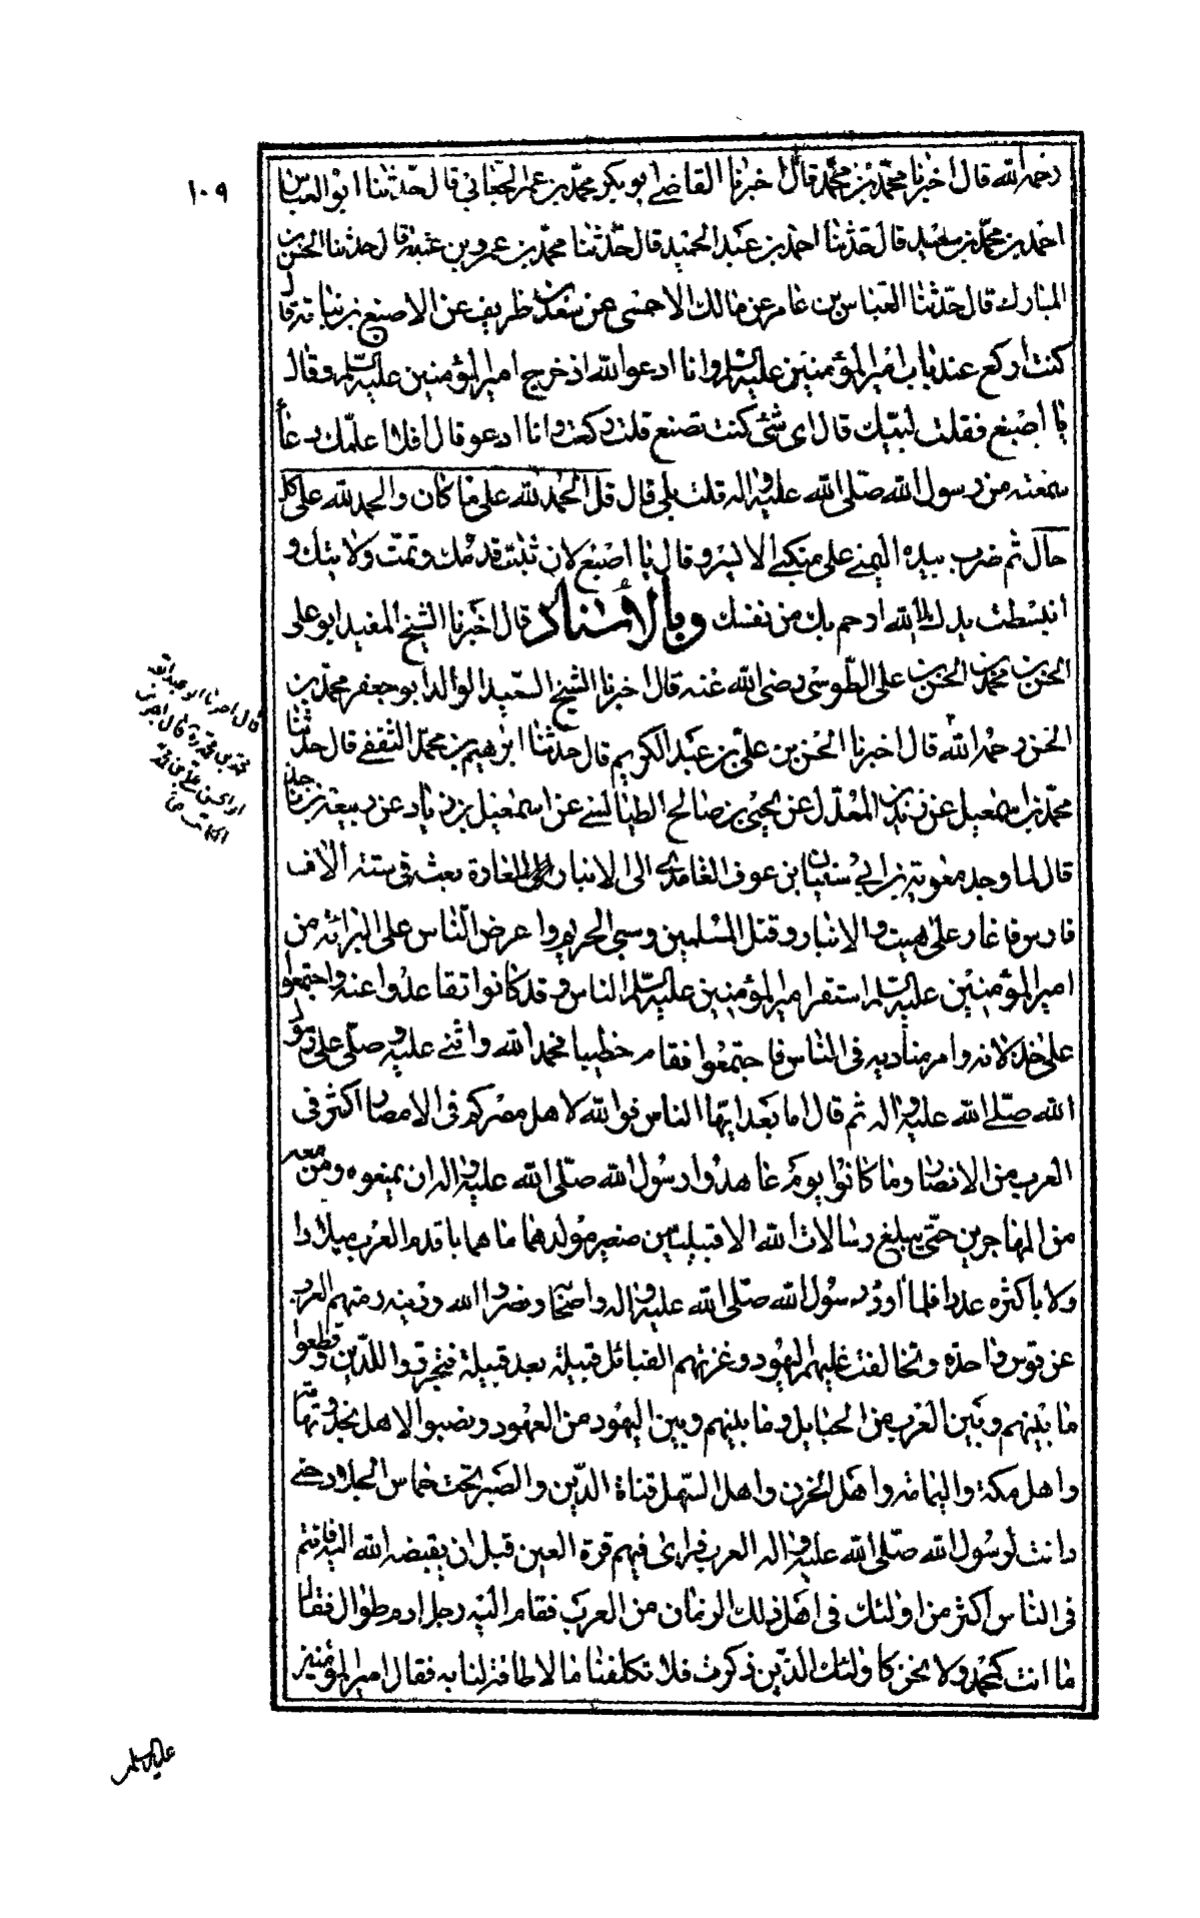 ١٠٩
رحمه الله قال اخبرنا محمد بن محمد قال اخبرنا القاضي ابو بكر محمد بن عمر الجعابي قال حدثنا ابو العباس
احمد بن محمد بن سعيد قال حدثنا احمد بن عبد الحميد قال حدثنا محمد بن عمرو بن عتبة قال حدثنا الحسن بن
المبارك قال حدثنا العباس بن عامر عن مالك الاحمسي عن سعد بن ظريف عن الاصبغ بن نباته قال
كنت اركع عند باب امير المؤمنين عليه السلم وانا ادعو الله اذ خرج امير المؤمنين عليه السلم وقال
يا اصبغ فقلت لبيك قال اى شئ كنت تصنع قلت ركعت وانا ادعو قال افلا علمك دعآ
سمعته من رسول الله صلى الله عليه واله قلت بلى قال قل الحمد لله على ما كان والحمد لله على كل
حال ثم ضرب بيده اليمنى على منكبي الايسر وقال يا اصبغ لان ثبتت قدمك وتمت ولايتك و
انبسطت يدك الله ارحم بك من نفسك وبالأسناد قال اخبرنا الشيخ المفيد ابو على
الحسن بن محمد بن الحسن بن على الطوسى رضى الله عنه قال اخبرنا الشيخ السعيد الوالد ابو جعفر محمد بن
الحسن رحمه الله قال اخبرنا الحسن بن على بن عبد الكريم قال حدثنا ابرهيم بن محمد الثقفى قال حدثنا
محمد بن اسمعيل عن زيد بن المعدل عن يحيى بن صالح الطيالسى عن اسمعيل بن زياد عن ربيعة بن ناجذ
قال لما وجد معوية بن ابي سفيان ابن عوف الغامدى الى الانبار للغارة بعثه فى ستة الاف
فارس فاغار على هيت والانبار وقتل المسلمين وسبى الحريم واعرض الناس على البرائة من
امير المؤمنين عليه السلم استنفر امير المؤمنين عليه السلم الناس وقد كانوا تقاعدوا عنه واجتمعوا
على خذلانه وامر مناديه فى الناس فاجتمعوا فقام خطيبا فحمد الله واثنى عليه وصلى على رسول
الله صلى الله عليه واله ثم قال اما بعد ايها الناس فوالله لاهل مصركم فى الامصار اكثر فى
العرب من الانصار وما كانوا يوم عاهدوا رسول الله صلى الله عليه واله ان يمنعوه ومن معه
من المهاجرين حتى يبلغ رسالات الله الا قبيلتين صغير مولدهما ما هما باقدم العرب ميلادا
ولا باكثره عددا فلما اووا رسول الله صلى الله عليه واله واصحابه ونصروا الله ودينه رمتهم العرب
عن قوس واحدة وتحالفت عليهم اليهود وغزتهم القبائل قبيلة بعد قبيلة فتجردوا للدين وقطعوا
ما بينهم وبين العرب من الحبايل وما بينهم وبين اليهود من العهود ونصبوا لاهل نجد وتهامة
واهل مكة واليمامة واهل الحزن واهل السهل قناة الدين والصبر تحت حماس الجلاد حتى
دانت لرسول الله صلى الله عليه واله العرب فراى فيهم قرة العين قبل ان يقبضه الله اليه فانتم
فى الناس اكثر من اولئك فى اهل ذلك الزمان من العرب فقام اليه رجل ادم طوال فقال
ما انت كمحمد ولا نحن كاولئك الذين ذكرت فلا تكلفنا ما لا طاقة لنا به فقال امير المؤمنين
قال اخبرنا ابو عبد الله
محمد بن محمد قال اخبرنى
ابو الحسن على بن محمد
الكاتب
عليه السلم